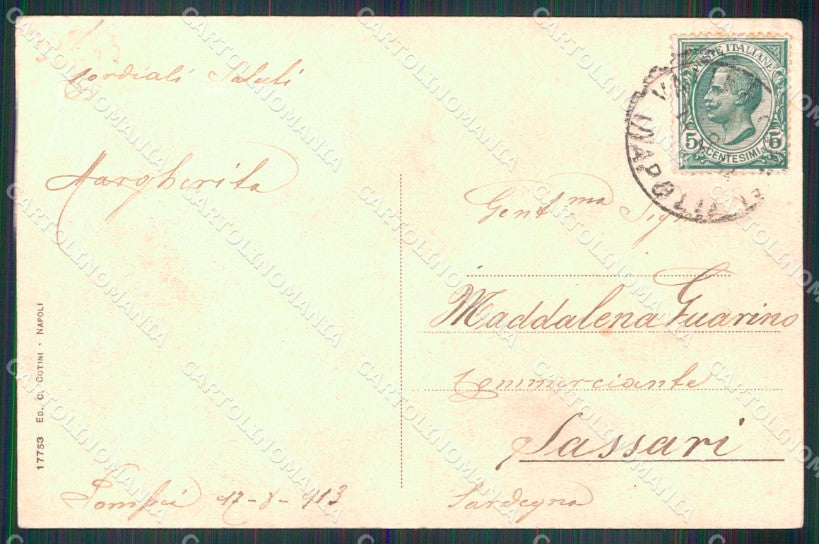 Cordiali Saluti
Margherita
Pompei 17-8-913
17753 ED. C. COTINI - NAPOLI
POSTE ITALIANE
5 CENTESIMI 5
NAPOLI
Gent.ma Sig.
Maddalena Guarino
Commerciante
Sassari
Sardegna
CARTOLINOMANIA